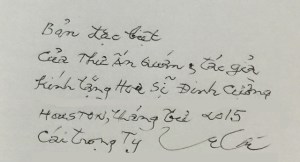 Bản đặc biệt
của Thư Ấn Quán & tác giả
kính tặng Hoạ Sĩ Đinh Cường
HOUSTON, tháng tư 2015
Cái Trọng Ty